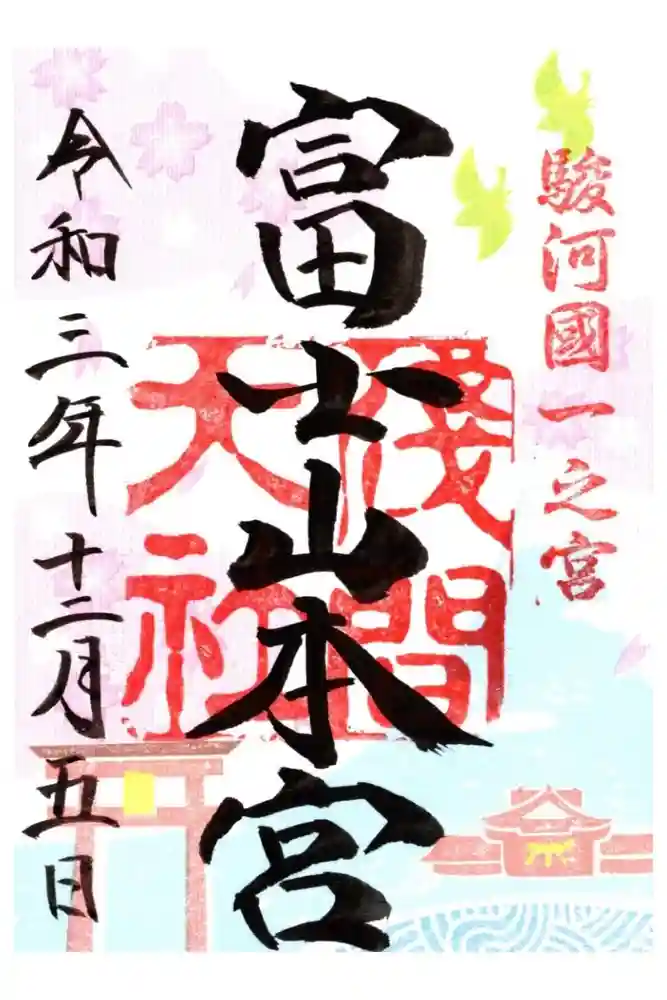 駿河國一之宮
富士山本宮
淺間
大社
令和三年十二月五日